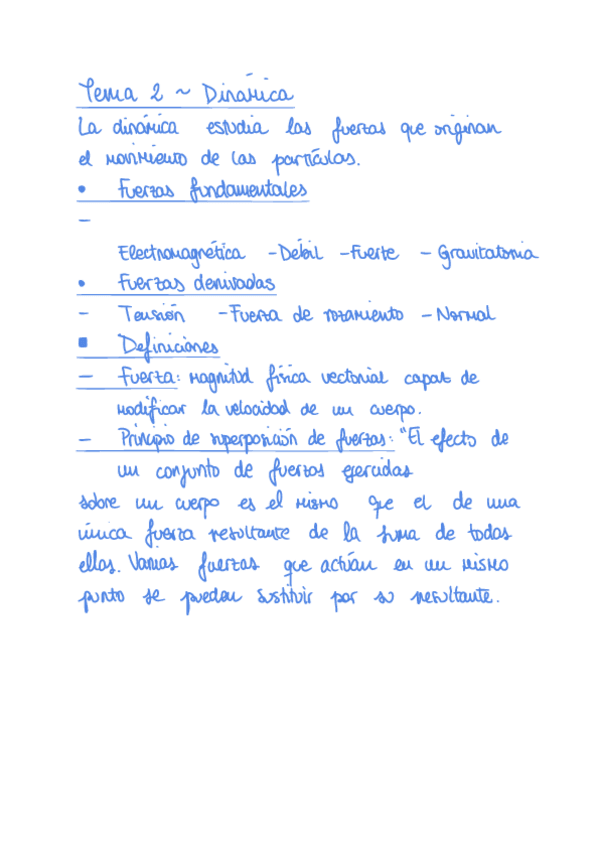 Tema 2 ~ Dinámica
La dinámica estudia las fuerzas que originan
el movimiento de las partículas.
• Fuerzas fundamentales
–
Electromagnética - Débil - Fuerte - Gravitatoria
• Fuerzas derivadas
- Tensión - Fuerza de rozamiento - Normal
▪ Definiciones
- Fuerza: magnitud física vectorial capaz de
modificar la velocidad de un cuerpo.
- Principio de superposición de fuerzas: "El efecto de
un conjunto de fuerzas ejercidas
sobre un cuerpo es el mismo que el de una
única fuerza resultante de la suma de todas
ellas. Varias fuerzas que actúan en un mismo
punto se pueden sustituir por su resultante.